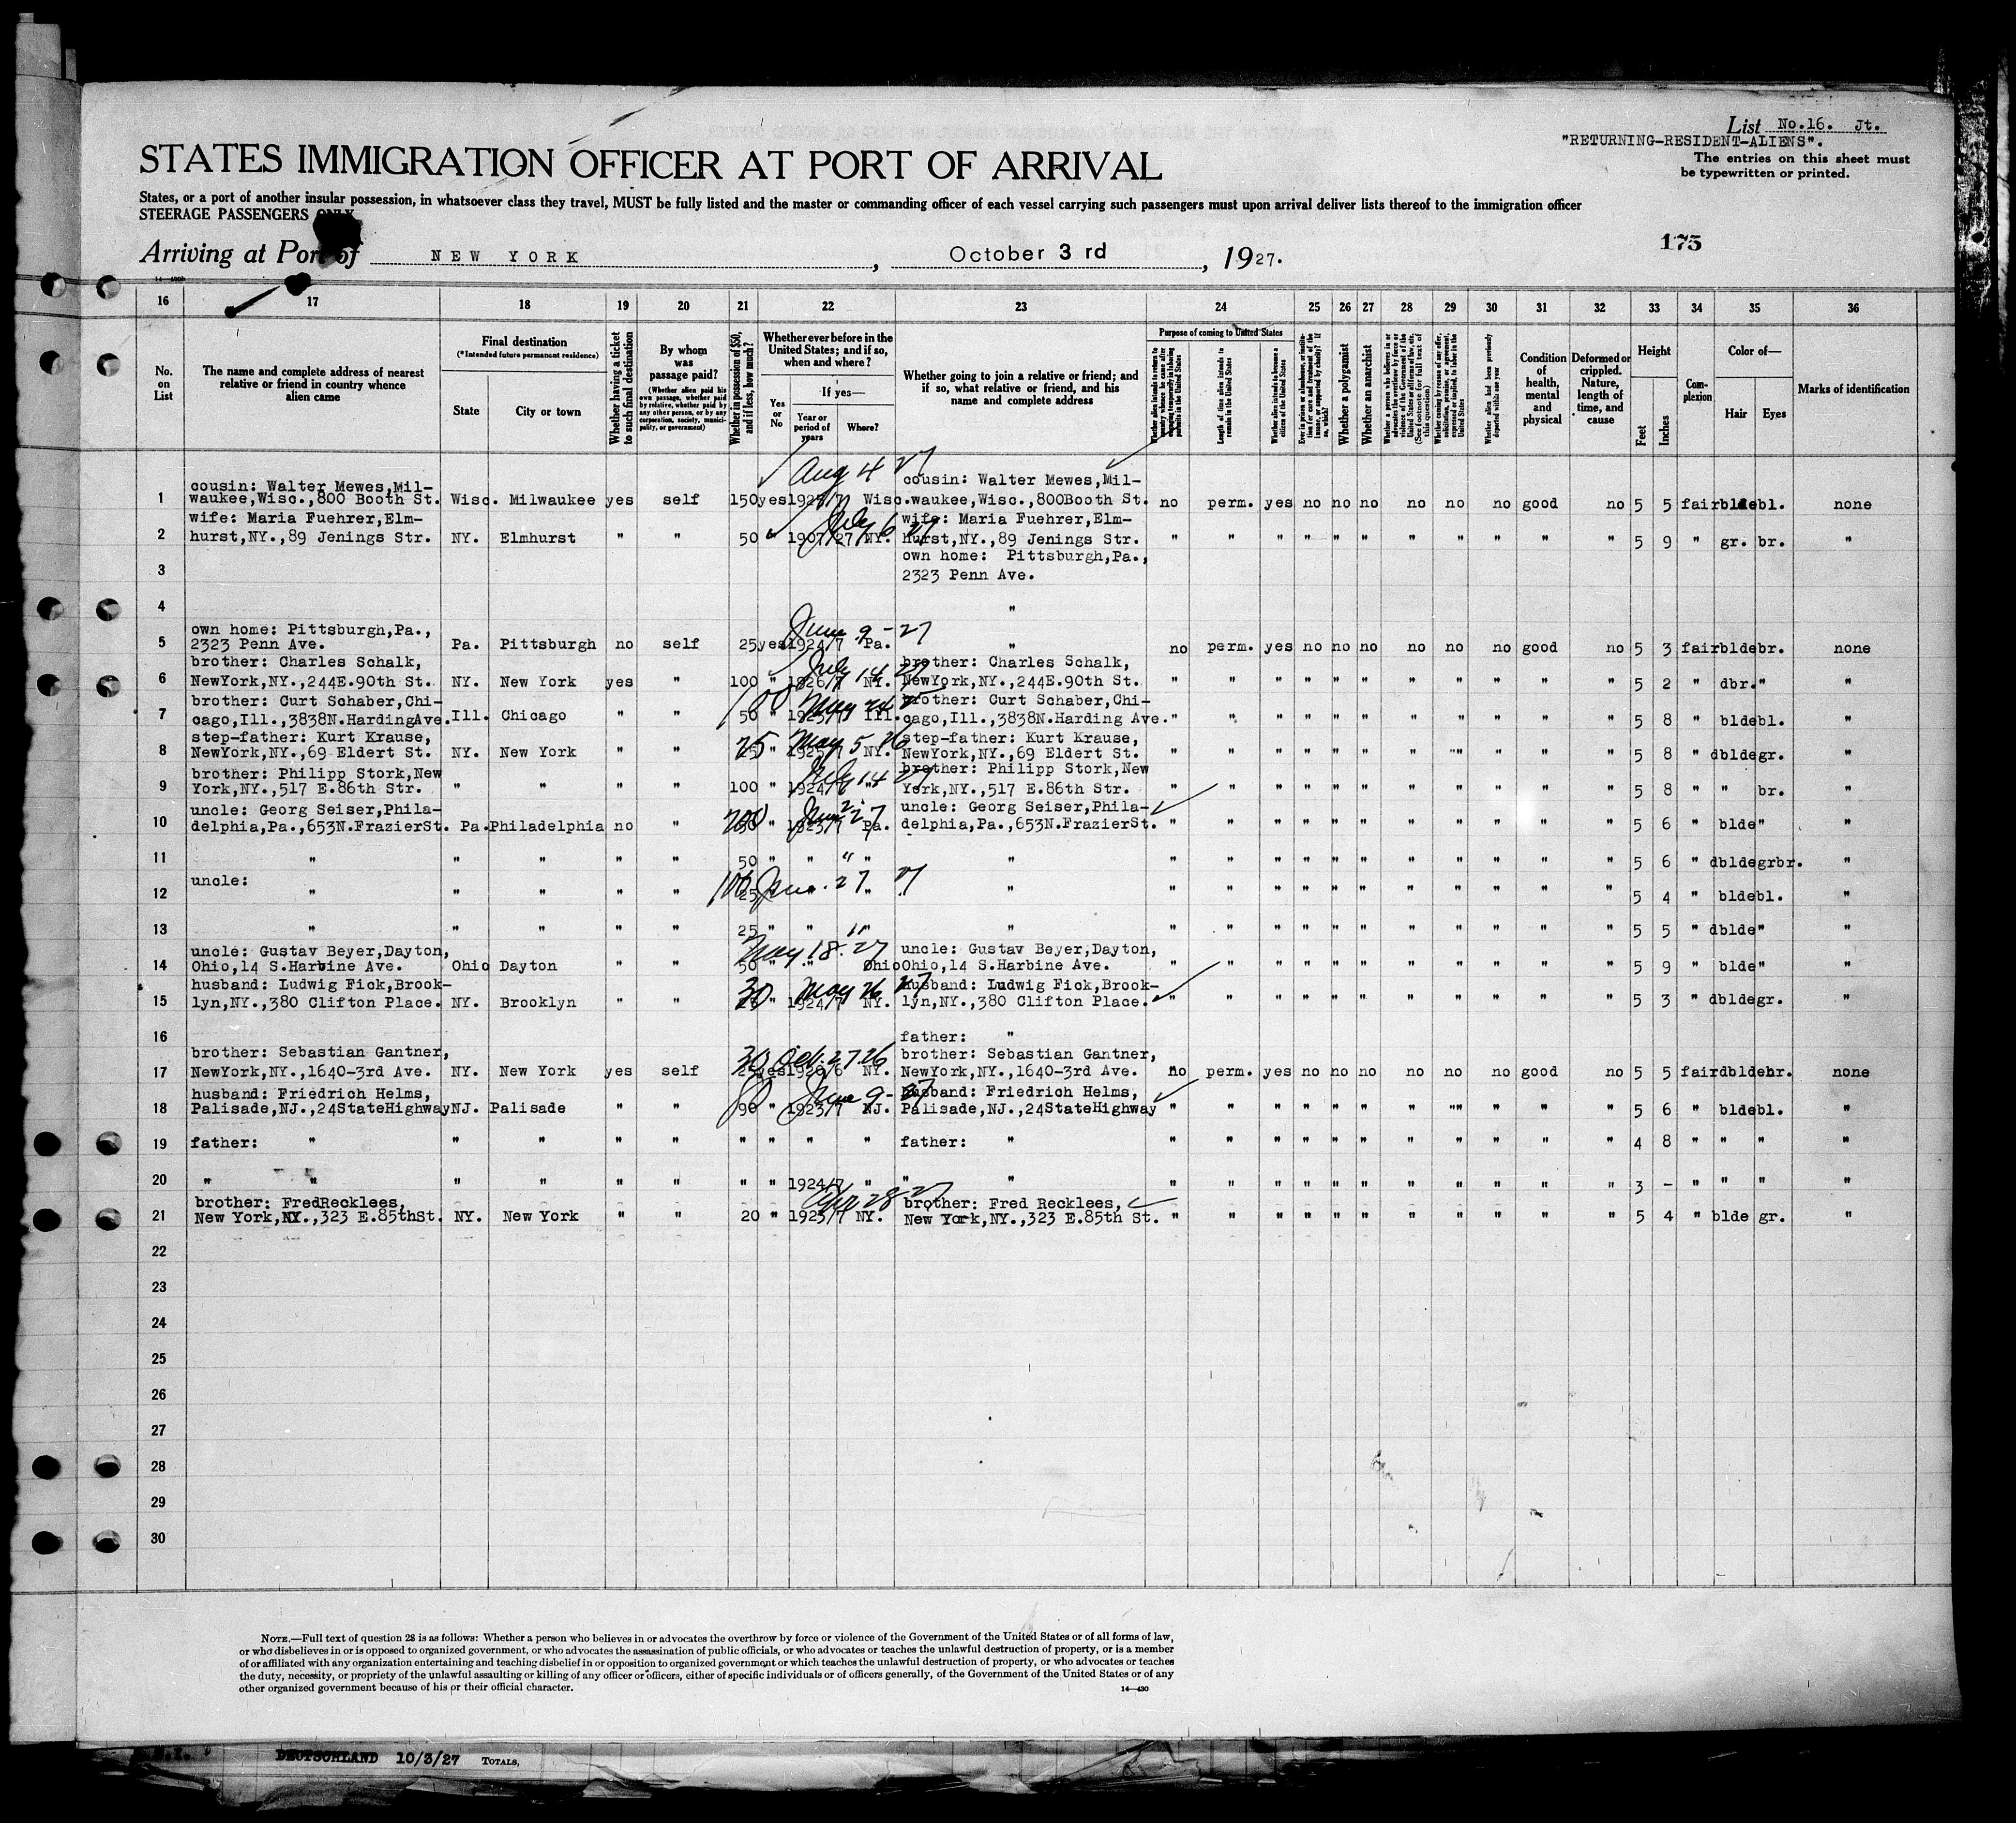 List No.16. Jt.
"RETURNING-RESIDENT-ALIENS".
STATES IMMIGRATION OFFICER AT PORT OF ARRIVAL
The entries on this sheet must
be typewritten or printed.
States, or a port of another insular possession, in whatsoever class they travel, MUST be fully listed and the master or commanding officer of each vessel carrying such passengers must upon arrival deliver lists thereof to the immigration officer
STEERAGE PASSENGERS ONLY
Arriving at Port of NEW YORK, October 3 rd, 1927.
175
16 17 18 19 20 21 22 23 24 25 26 27 28 29 30 31 32 33 34 35 36
No. on List
The name and complete address of nearest relative or friend in country whence alien came
Final destination
(*Intended future permanent residence)
State
City or town
Whether having a ticket to such final destination
By whom was passage paid?
(Whether alien paid his own passage, whether paid by relative, whether paid by any other person, or by any corporation, society, municipality, or government)
Whether in possession of $50, and if less, how much?
Whether ever before in the United States; and if so, when and where?
Yes or No
If yes—
Year or period of years
Where?
Whether going to join a relative or friend; and if so, what relative or friend, and his name and complete address
Purpose of coming to United States
Length of time alien intends to remain in the United States
Whether alien intends to become a citizen of the United States
Whether a polygamist
Whether an anarchist
Whether alien had been previously deported within one year
Condition of health, mental and physical
Deformed or crippled. Nature, length of time, and cause
Height
Feet
Inches
Complexion
Color of—
Hair
Eyes
Marks of identification
Aug 4 27
1 cousin: Walter Mewes,Mil-
waukee,Wisc.,800 Booth St. Wisc. Milwaukee yes self 150 yes Wisc. cousin: Walter Mewes,Mil-
waukee,Wisc.,800Booth St. no perm. yes no no no no no no good no 5 5 fair blde bl. none
July 6 27
2 wife: Maria Fuehrer,Elm-
hurst,NY.,89 Jenings Str. NY. Elmhurst " " 50 1907/27 NY. wife: Maria Fuehrer,Elm-
hurst,NY.,89 Jenings Str. " " " " " " " " " " " 5 9 " gr. br. "
3 own home: Pittsburgh,Pa.,
2323 Penn Ave.
4 "
June 9-27
5 own home: Pittsburgh,Pa.,
2323 Penn Ave. Pa. Pittsburgh no self 25 yes 1924/7 Pa. " no perm. yes no no no no no no good no 5 3 fair blde br. none
July 14 27
6 brother: Charles Schalk,
NewYork,NY.,244E.90th St. NY. New York yes " 100 " 1926/7 NY. brother: Charles Schalk,
NewYork,NY.,244E.90th St. " " " " " " " " " " " 5 2 " dbr. " "
7 brother: Curt Schaber,Chi-
cago,Ill.,3838N.HardingAve. Ill. Chicago " " 50 100 " Ill. brother: Curt Schaber,Chi-
cago,Ill.,3838N.Harding Ave. " " " " " " " " " " " 5 8 " blde bl. "
May 5 26
8 step-father: Kurt Krause,
NewYork,NY.,69 Eldert St. NY. New York " " 75 " NY. step-father: Kurt Krause,
NewYork,NY.,69 Eldert St. " " " " " " " " " " " 5 8 " dblde gr. "
July 14 27
9 brother: Philipp Stork,New
York,NY.,517 E.86th Str. " " " " 100 " " brother: Philipp Stork,New
York,NY.,517 E.86th Str. " " " " " " " " " " " 5 8 " " br. "
10 uncle: Georg Seiser,Phila-
delphia,Pa.,653N.FrazierSt. Pa. Philadelphia no " 200 " 1923/7 Pa. uncle: Georg Seiser,Phila-
delphia,Pa.,653N.FrazierSt. " " " " " " " " " " " 5 6 " blde " "
11 " " " " " 50 " " " " " " " " " " " " " " " " 5 6 " dblde grbr. "
12 uncle: " " " " " 100 25 " " " " " " " " " " " " " 5 4 " blde bl. "
13 " " " " " 25 " " " " " " " " " " " " " " " 5 5 " dblde " "
May 18. 27
14 uncle: Gustav Beyer,Dayton,
Ohio,14 S.Harbine Ave. Ohio Dayton " " 50 " " Ohio uncle: Gustav Beyer,Dayton,
Ohio,14 S.Harbine Ave. " " " " " " " " " " " 5 9 " blde " "
May 26 27
15 husband: Ludwig Fick,Brook-
lyn,NY.,380 Clifton Place. NY. Brooklyn " " 30 " 1924/7 NY. husband: Ludwig Fick,Brook-
lyn,NY.,380 Clifton Place. " " " " " " " " " " " 5 3 " dblde gr. "
16 father: "
Oct. 27.26
17 brother: Sebastian Gantner,
NewYork,NY.,1640-3rd Ave. NY. New York yes self 30 25 yes NY. brother: Sebastian Gantner,
NewYork,NY.,1640-3rd Ave. no perm. yes no no no no no no good no 5 5 fair dblde br. none
June 9-27
18 husband: Friedrich Helms,
Palisade,NJ.,24StateHighway NJ. Palisade " " 90 " 1923/7 NJ. husband: Friedrich Helms,
Palisade,NJ.,24StateHighway " " " " " " " " " " " 5 6 " blde bl. "
19 father: " " " " " " " " " father: " " " " " " " " " " " " 4 8 " " " "
20 " " " " " " " " 1924/7 " " " " " " " " " " " " " " 3 - " " " "
Apr 28 27
21 brother: FredRecklees,
New York,NY.,323 E.85thSt. NY. New York " " 20 " 1923/7 NY. brother: Fred Recklees,
New York,NY.,323 E.85th St. " " " " " " " " " " " 5 4 " blde gr. "
22
23
24
25
26
27
28
29
30
NOTE.—Full text of question 28 is as follows: Whether a person who believes in or advocates the overthrow by force or violence of the Government of the United States or of all forms of law,
or who disbelieves in or is opposed to organized government, or who advocates the assassination of public officials, or who advocates or teaches the unlawful destruction of property, or is a member
of or affiliated with any organization entertaining and teaching disbelief in or opposition to organized government or which teaches the unlawful destruction of property, or who advocates or teaches
the duty, necessity, or propriety of the unlawful assaulting or killing of any officer or officers, either of specific individuals or of officers generally, of the Government of the United States or of any
other organized government because of his or their official character.
14—430
DEUTSCHLAND 10/3/27 TOTALS,